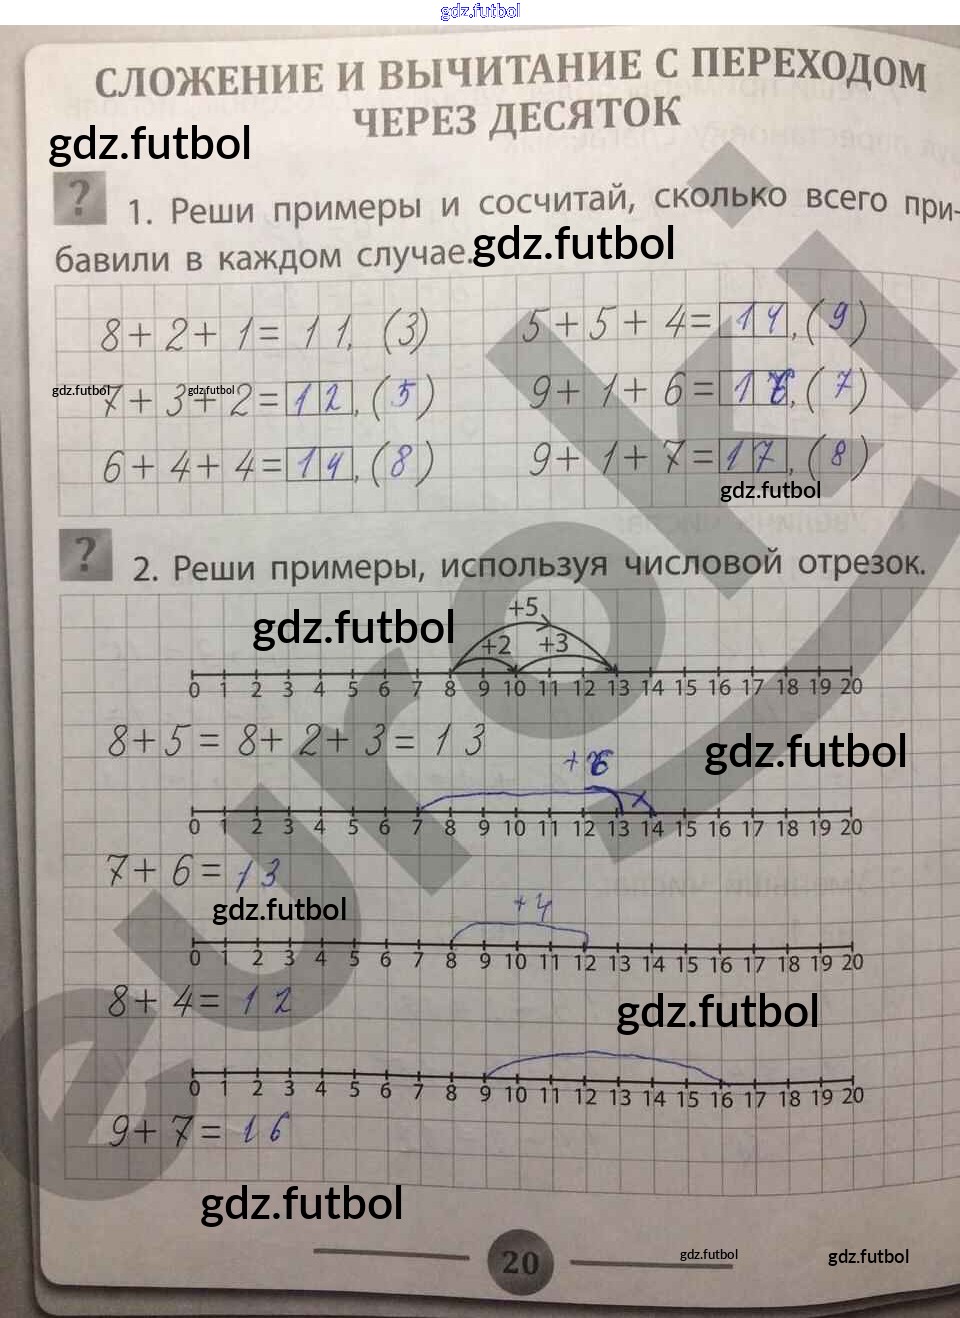 gdz.futbol
СЛОЖЕНИЕ И ВЫЧИТАНИЕ С ПЕРЕХОДОМ
ЧЕРЕЗ ДЕСЯТОК
gdz.futbol
? 1. Реши примеры и сосчитай, сколько всего при-
бавили в каждом случае.
gdz.futbol
8+2+1=11, (3)
5+5+4=14, (9)
gdz.futbol
gdz.futbol
7+3+2=12, (5)
9+1+6=16, (7)
6+4+4=14, (8)
9+1+7=17, (8)
gdz.futbol
? 2. Реши примеры, используя числовой отрезок.
gdz.futbol
+5
+2 +3
0 1 2 3 4 5 6 7 8 9 10 11 12 13 14 15 16 17 18 19 20
8+5=8+2+3=13
gdz.futbol
+6
0 1 2 3 4 5 6 7 8 9 10 11 12 13 14 15 16 17 18 19 20
7+6=13
gdz.futbol
+4
0 1 2 3 4 5 6 7 8 9 10 11 12 13 14 15 16 17 18 19 20
8+4=12
gdz.futbol
0 1 2 3 4 5 6 7 8 9 10 11 12 13 14 15 16 17 18 19 20
9+7=16
gdz.futbol
20
gdz.futbol
gdz.futbol
euroki